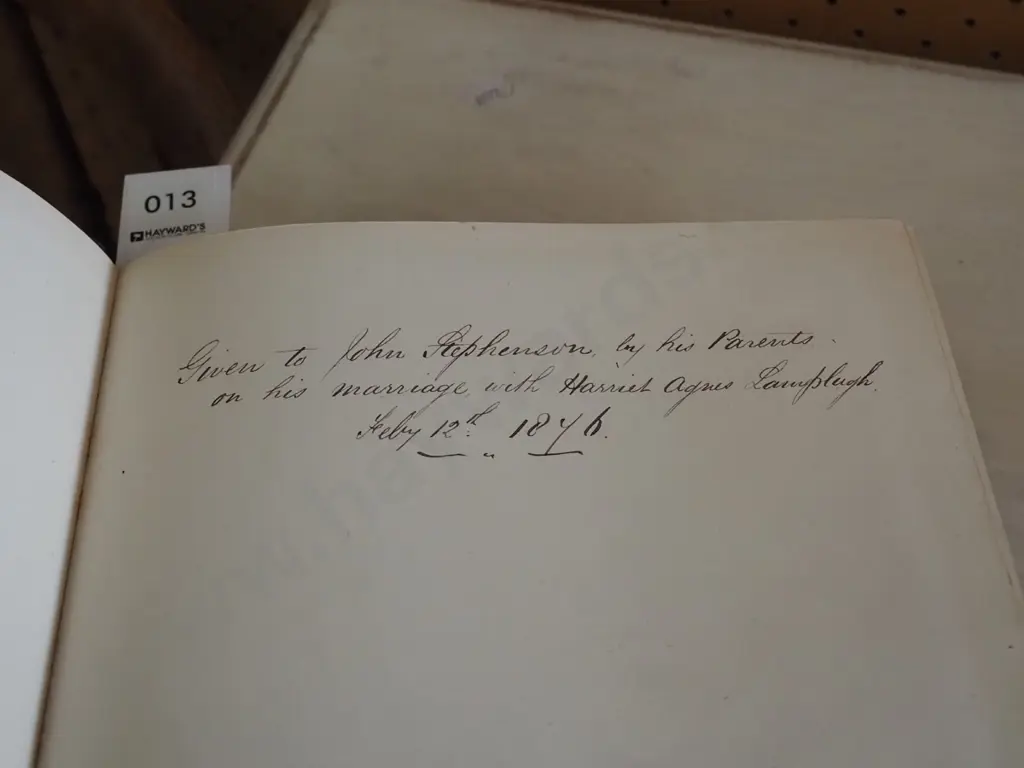 013
HAYWARD'S
Given to John Stephenson, by his Parents.
on his marriage, with Harriet Agnes Lamplugh.
Feby 12th 1876.